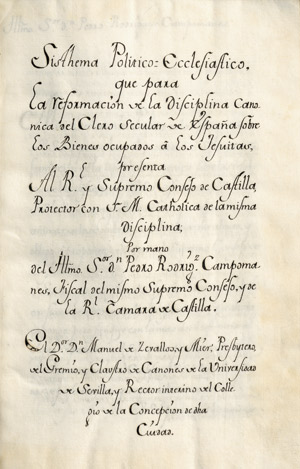 Sisthema Politico-Ecclesiastico,
que para
La reformacion de la Disciplina Cano-
nica del Clero Secular de España sobre
los Bienes ocupados à los Jesuitas,
presenta
Al R.l y Supremo Consejo de Castilla,
Protector con S. M. Catholica de la misma
Disciplina,
Por mano
del Illmo. S.or D.n Pedro Rodrig.z Campoma-
nes, Fiscal del mismo Supremo Consejo, y de
la R.l Camara de Castilla.
El D.or D.n Manuel de Zevallos, y Mier, Presbytero,
del Gremio, y Claustro de Canones de la Universidad
de Sevilla, y Rector interino del Cole-
gio de la Concepcion de dha
Ciudad.